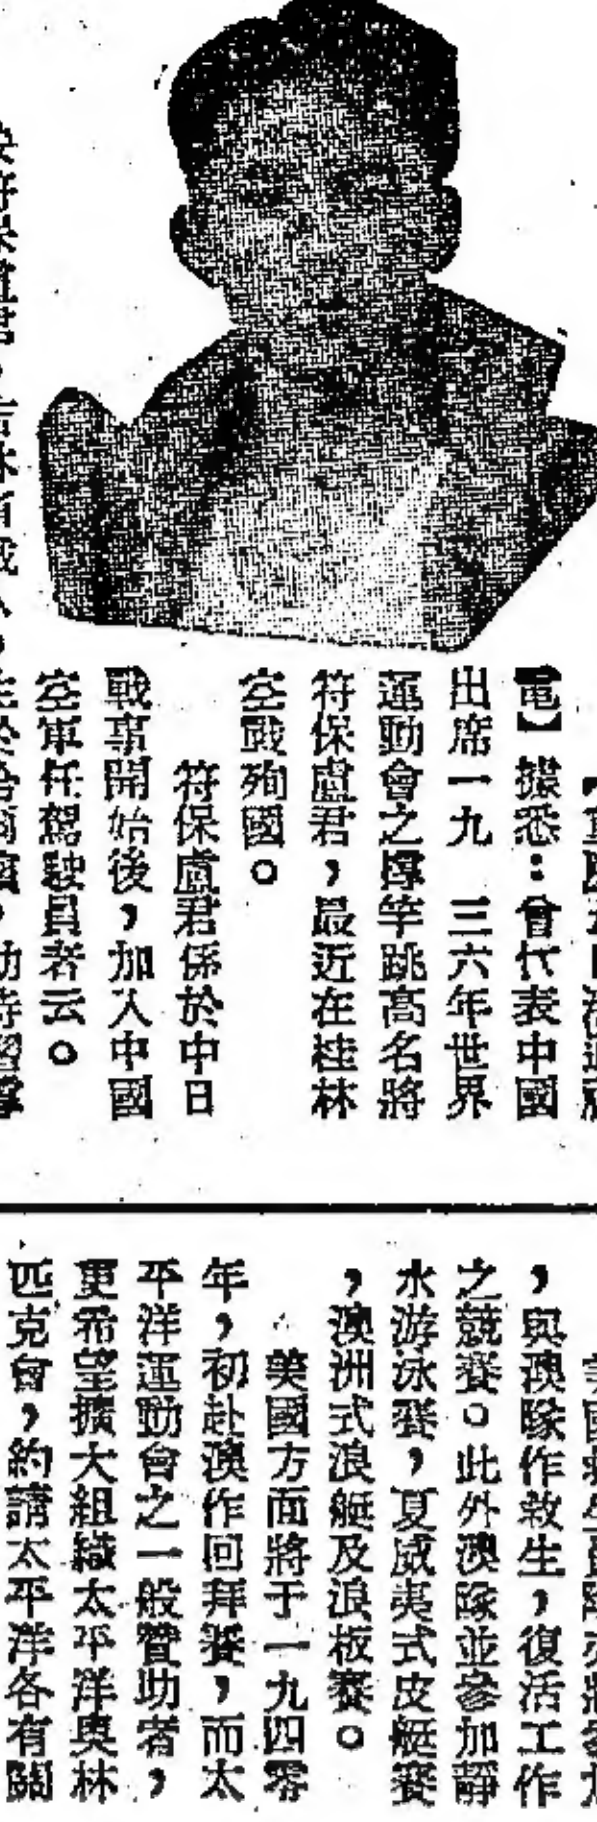 電】據悉：曾代表中國
出席一九　三六年世界
運動會之撑竿跳高名將
符保盧君，最近在桂林
空戰殉國。
符保盧君係於中日
戰事開始後，加入中國
空軍任駕駛員者云。
，與澳隊作救生，復活工作
之競賽。此外澳隊並參加靜
水游泳賽，夏威夷式皮艇賽
，澳洲式浪艇及浪板賽。
美國方面將于一九四零
年，初赴澳作回拜賽，而太
平洋運動會之一般贊助者，
更希望擴大組織太平洋奧林
匹克會，約請太平洋各有關